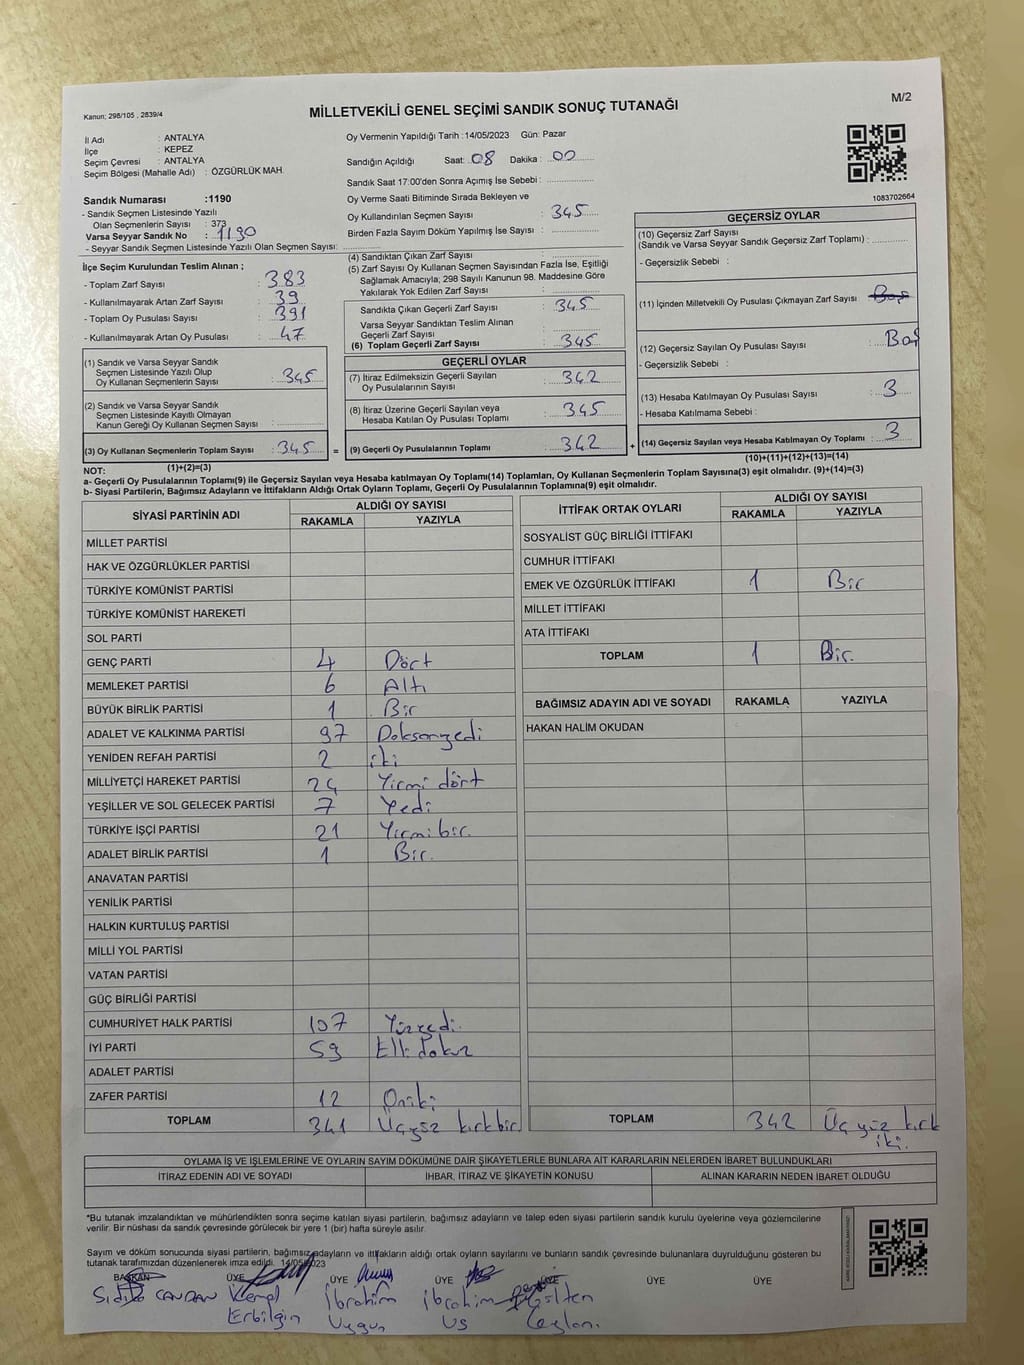 Kanun; 298/105 , 2839/4
MİLLETVEKİLİ GENEL SEÇİMİ SANDIK SONUÇ TUTANAĞI
M/2
İl Adı : ANTALYA
İlçe : KEPEZ
Seçim Çevresi : ANTALYA
Seçim Bölgesi (Mahalle Adı) : ÖZGÜRLÜK MAH.
Sandık Numarası :1190
- Sandık Seçmen Listesinde Yazılı
Olan Seçmenlerin Sayısı : 373
Varsa Seyyar Sandık No : 1190
- Seyyar Sandık Seçmen Listesinde Yazılı Olan Seçmen Sayısı:
Oy Vermenin Yapıldığı Tarih :14/05/2023 Gün: Pazar
Sandığın Açıldığı Saat: 08 Dakika : 00
Sandık Saat 17:00'den Sonra Açımış İse Sebebi :
Oy Verme Saati Bitiminde Sırada Bekleyen ve
Oy Kullandırılan Seçmen Sayısı : 345
Birden Fazla Sayım Döküm Yapılmış İse Sayısı :
1083702664
İlçe Seçim Kurulundan Teslim Alınan ;
- Toplam Zarf Sayısı : 383
- Kullanılmayarak Artan Zarf Sayısı : 39
- Toplam Oy Pusulası Sayısı : 391
- Kullanılmayarak Artan Oy Pusulası : 47
(1) Sandık ve Varsa Seyyar Sandık
Seçmen Listesinde Yazılı Olup
Oy Kullanan Seçmenlerin Sayısı : 345
(2) Sandık ve Varsa Seyyar Sandık
Seçmen Listesinde Kayıtlı Olmayan
Kanun Gereği Oy Kullanan Seçmen Sayısı :
(3) Oy Kullanan Seçmenlerin Toplam Sayısı : 345 =
(1)+(2)=(3)
(4) Sandıktan Çıkan Zarf Sayısı :
(5) Zarf Sayısı Oy Kullanan Seçmen Sayısından Fazla İse, Eşitliği
Sağlamak Amacıyla; 298 Sayılı Kanunun 98. Maddesine Göre
Yakılarak Yok Edilen Zarf Sayısı :
Sandıkta Çıkan Geçerli Zarf Sayısı : 345
Varsa Seyyar Sandıktan Teslim Alınan
Geçerli Zarf Sayısı :
(6) Toplam Geçerli Zarf Sayısı : 345
GEÇERLİ OYLAR
(7) İtiraz Edilmeksizin Geçerli Sayılan
Oy Pusulalarının Sayısı : 342
(8) İtiraz Üzerine Geçerli Sayılan veya
Hesaba Katılan Oy Pusulası Toplamı : 345
(9) Geçerli Oy Pusulalarının Toplamı : 342 +
GEÇERSİZ OYLAR
(10) Geçersiz Zarf Sayısı
(Sandık ve Varsa Seyyar Sandık Geçersiz Zarf Toplamı) :
- Geçersizlik Sebebi :
(11) İçinden Milletvekili Oy Pusulası Çıkmayan Zarf Sayısı : Boş
(12) Geçersiz Sayılan Oy Pusulası Sayısı : Boş
- Geçersizlik Sebebi :
(13) Hesaba Katılmayan Oy Pusulası Sayısı : 3
- Hesaba Katılmama Sebebi :
(14) Geçersiz Sayılan veya Hesaba Katılmayan Oy Toplamı : 3
(10)+(11)+(12)+(13)=(14)
NOT:
a- Geçerli Oy Pusulalarının Toplamı(9) ile Geçersiz Sayılan veya Hesaba katılmayan Oy Toplamı(14) Toplamları, Oy Kullanan Seçmenlerin Toplam Sayısına(3) eşit olmalıdır. (9)+(14)=(3)
b- Siyasi Partilerin, Bağımsız Adayların ve İttifakların Aldığı Ortak Oyların Toplamı, Geçerli Oy Pusulalarının Toplamına(9) eşit olmalıdır.
SİYASİ PARTİNİN ADI ALDIĞI OY SAYISI
RAKAMLA YAZIYLA
MİLLET PARTİSİ
HAK VE ÖZGÜRLÜKLER PARTİSİ
TÜRKİYE KOMÜNİST PARTİSİ
TÜRKİYE KOMÜNİST HAREKETİ
SOL PARTİ
GENÇ PARTİ 4 Dört
MEMLEKET PARTİSİ 6 Altı
BÜYÜK BİRLİK PARTİSİ 1 Bir
ADALET VE KALKINMA PARTİSİ 97 Doksanyedi
YENİDEN REFAH PARTİSİ 2 iki
MİLLİYETÇİ HAREKET PARTİSİ 24 Yirmi dört
YEŞİLLER VE SOL GELECEK PARTİSİ 7 Yedi
TÜRKİYE İŞÇİ PARTİSİ 21 Yirmibir.
ADALET BİRLİK PARTİSİ 1 Bir.
ANAVATAN PARTİSİ
YENİLİK PARTİSİ
HALKIN KURTULUŞ PARTİSİ
MİLLİ YOL PARTİSİ
VATAN PARTİSİ
GÜÇ BİRLİĞİ PARTİSİ
CUMHURİYET HALK PARTİSİ 107 Yüzyedi.
İYİ PARTİ 59 Elli dokuz
ADALET PARTİSİ
ZAFER PARTİSİ 12 Oniki
TOPLAM 341 Üçyüz kırkbir
İTTİFAK ORTAK OYLARI ALDIĞI OY SAYISI
RAKAMLA YAZIYLA
SOSYALİST GÜÇ BİRLİĞİ İTTİFAKI
CUMHUR İTTİFAKI
EMEK VE ÖZGÜRLÜK İTTİFAKI 1 Bir
MİLLET İTTİFAKI
ATA İTTİFAKI
TOPLAM 1 Bir.
BAĞIMSIZ ADAYIN ADI VE SOYADI RAKAMLA YAZIYLA
HAKAN HALİM OKUDAN
TOPLAM 342 Üç yüz kırk
iki.
OYLAMA İŞ VE İŞLEMLERİNE VE OYLARIN SAYIM DÖKÜMÜNE DAİR ŞİKAYETLERLE BUNLARA AİT KARARLARIN NELERDEN İBARET BULUNDUKLARI
İTİRAZ EDENİN ADI VE SOYADI İHBAR, İTİRAZ VE ŞİKAYETİN KONUSU ALINAN KARARIN NEDEN İBARET OLDUĞU
*Bu tutanak imzalandıktan ve mühürlendikten sonra seçime katılan siyasi partilerin, bağımsız adayların ve talep eden siyasi partilerin sandık kurulu üyelerine veya gözlemcilerine
verilir. Bir nüshası da sandık çevresinde görülecek bir yere 1 (bir) hafta süreyle asılır.
Sayım ve döküm sonucunda siyasi partilerin, bağımsız adayların ve ittifakların aldığı ortak oyların sayılarını ve bunların sandık çevresinde bulunanlara duyrulduğunu gösteren bu
tutanak tarafımızdan düzenlenerek imza edildi. 14/05/2023
BAŞKAN ÜYE ÜYE ÜYE ÜYE ÜYE ÜYE
Sıdıka CANDAN Kemal İbrahim İbrahim Gülten
Erbilgin Uygun Us Ceylan.